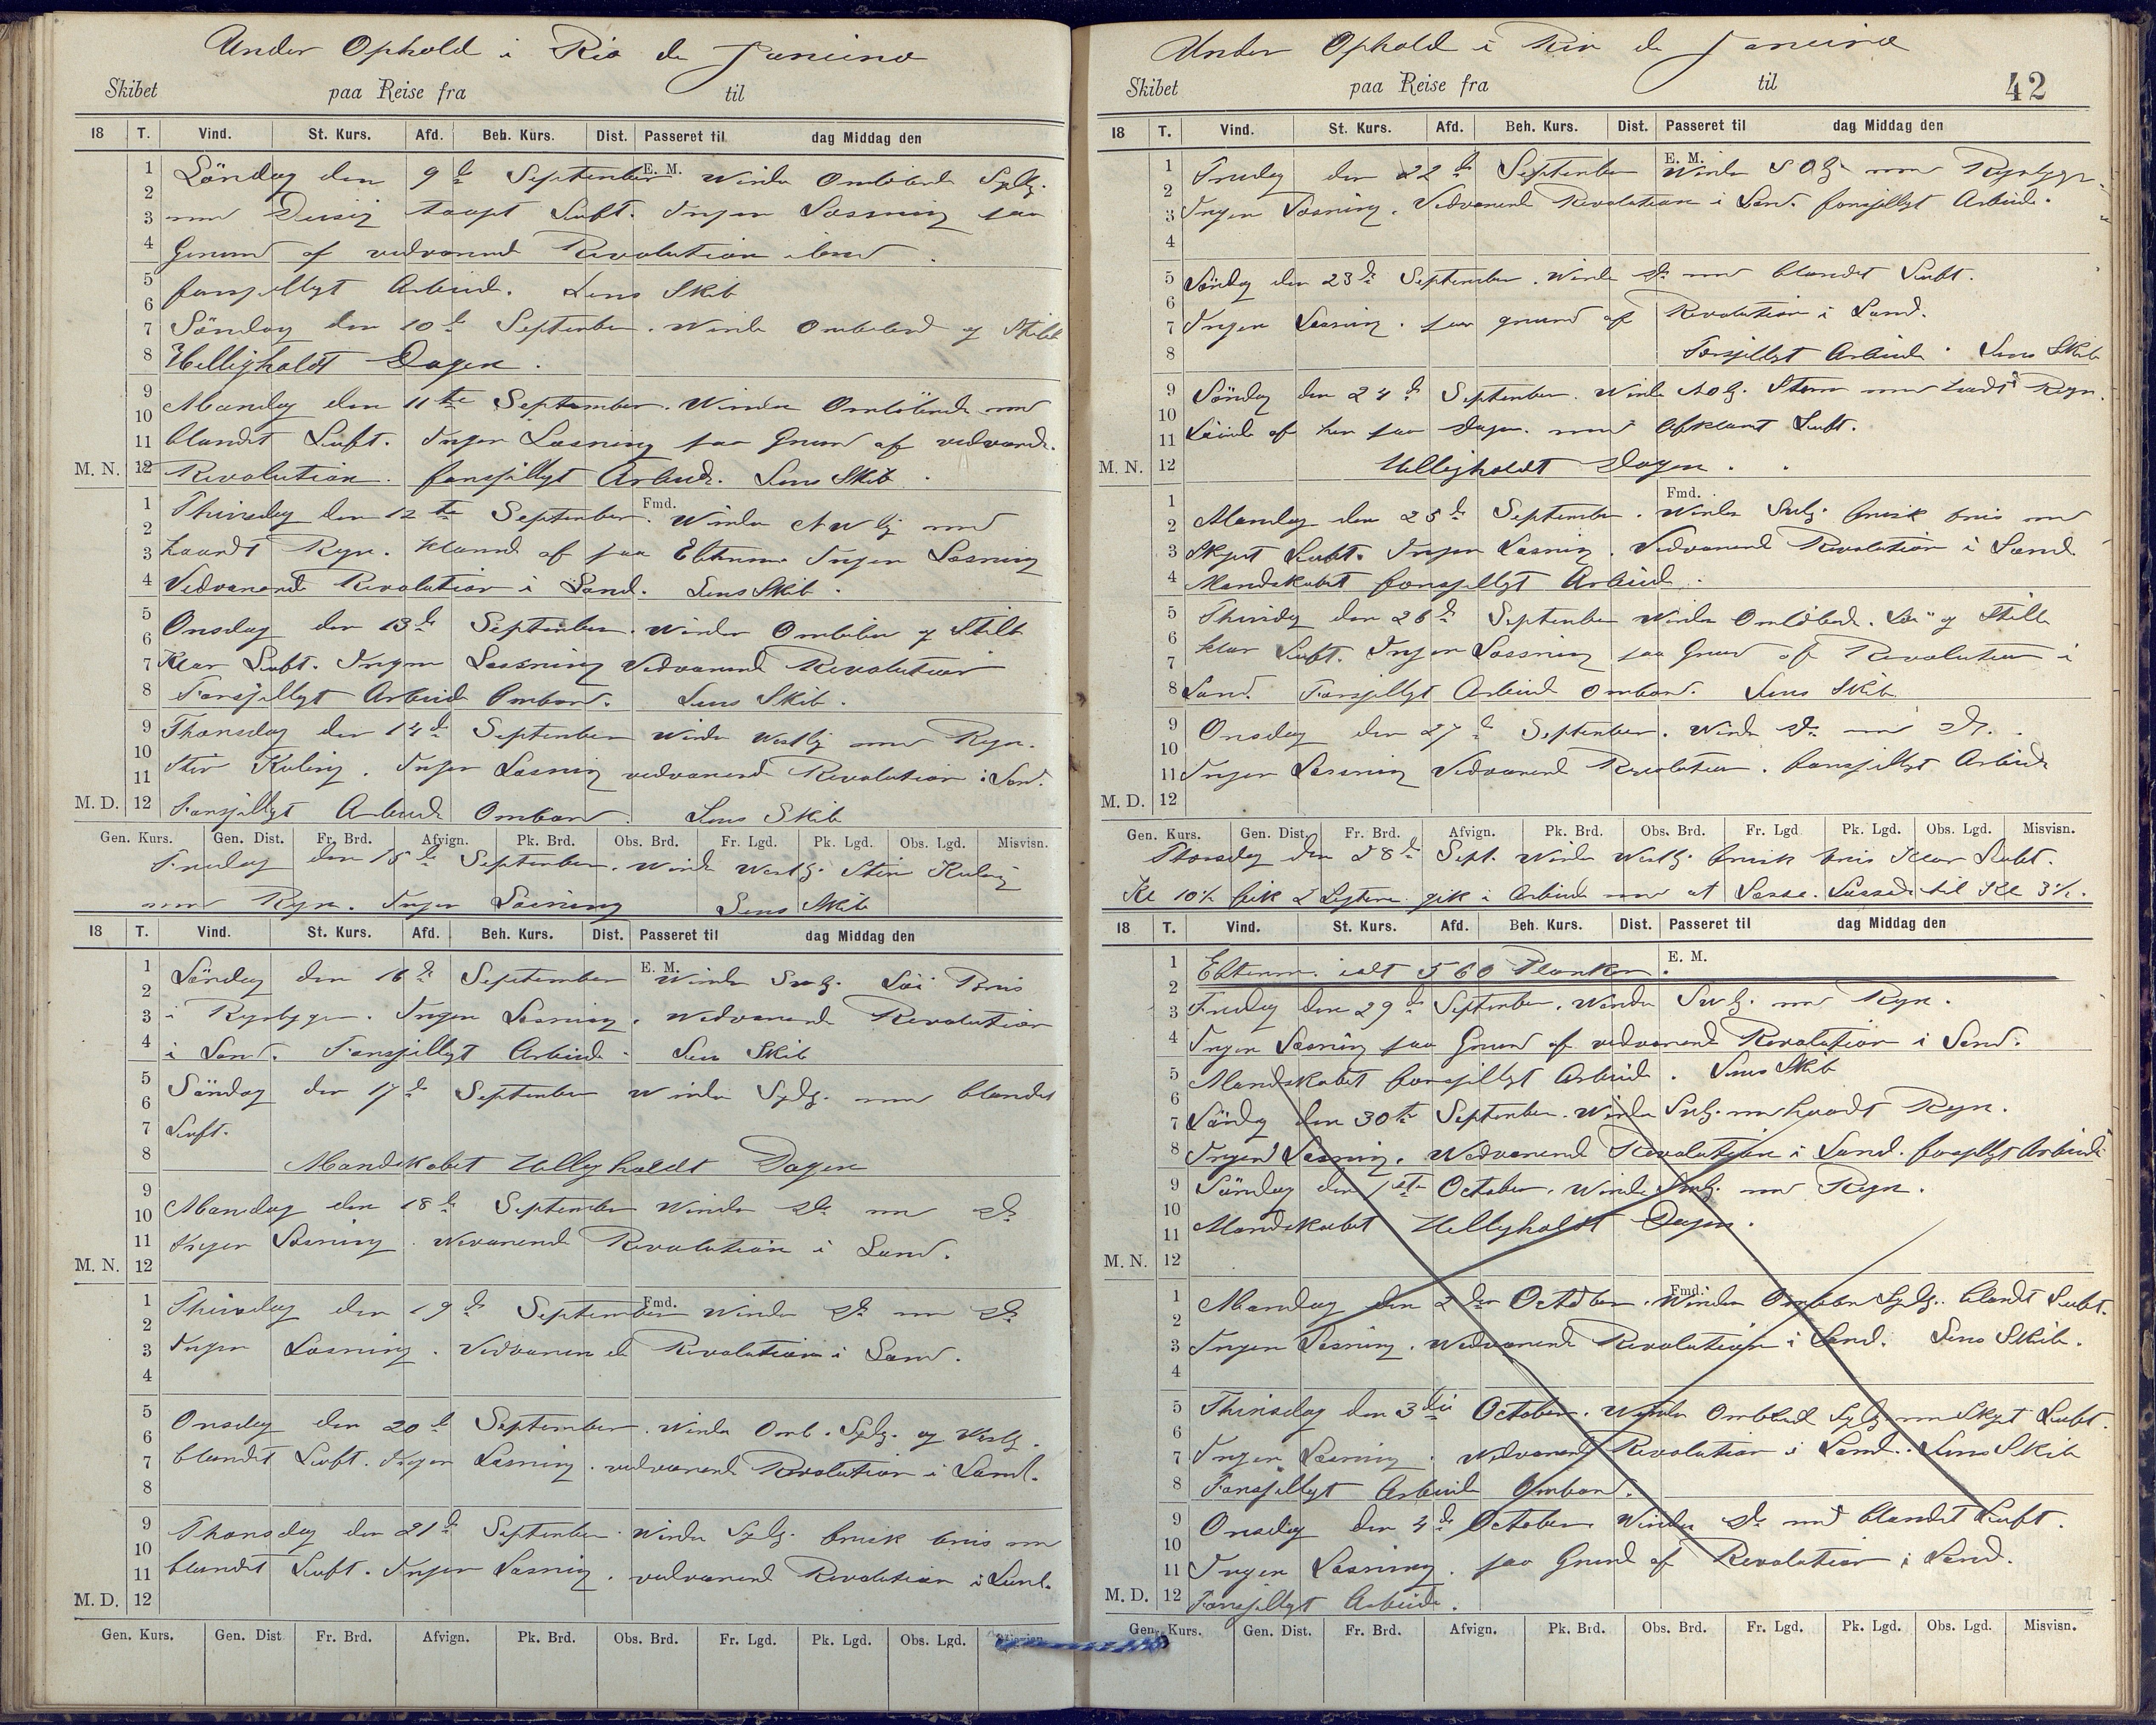 Under Ophold i Rio de Janeiro
Skibet paa Reise fra til
18 T. Vind. St. Kurs. Afd. Beh. Kurs. Dist. Passeret til dag Middag den
E. M.
1 Löndag den 9de September Vinden Omlöbende Sydlg.
2
3 med Disig taaget Luft. Ingen Losning paa
4 Grund af vedvarend Revolution iland.
5 forsjelligt Arbeid. Lens Skib
6
7 Söndag den 10de September. Vinden Omlöbend og Stille
8 Helligholdt Dagen.
9 Mandag den 11te September. Vinden Omlöbende med
10
11 blandet Luft. Ingen Losning paa Grund af vedvarde.
M. N. 12 Revolution. forsjelligt Arbeid. Lens Skib.
Fmd.
1 Thirsdag den 12te September. Vinden NW lig med
2
3 haardt Regn. klarned af paa Efterm. Ingen Losning
4 Vedvarend Revolution i Land. Lens Skib.
5 Onsdag den 13de September. Vinden Omlöben og Stille
6
7 Klar Luft. Ingen Lossning Vedvarend Revolution
8 Forsjelligt Arbeid Ombord. Lens Skib.
9 Thorsdag den 14de September Vinden Westlig med Regn.
10
11 Stiv Kuling. Ingen Losning vedvarend Revolution i Land.
M. D. 12 Forsjelligt Arbeide Ombord. Lens Skib
Gen. Kurs. Gen. Dist. Fr. Brd. Afvign. Pk. Brd. Obs. Brd. Fr. Lgd. Pk. Lgd. Obs. Lgd. Misvisn.
Fredag den 15de September. Vinde Westlg. Stiv Kuling
med Regn. Ingen Losning Lens Skib
18 T. Vind. St. Kurs. Afd. Beh. Kurs. Dist. Passeret til dag Middag den
E. M.
1 Löndag den 16de September Vinden Swlg. Löi Bris
2
3 i Regnbyger. Ingen Losning. Vedvarende Revolution
4 i Land. Forsjelligt Arbeide. Lens Skib
5 Söndag den 17de September Vinden Sydlg. med blandet
6
7 Luft.
8 Mandskabet Helligholdt Dagen
9
10 Mandag den 18de September Vinden do med do
11 Ingen Losning. Vevarende Revolution i Land.
M. N. 12
Fmd.
1 Thirsdag den 19de September Vinden do med do
2
3 Ingen Losning. Vedvarende Revolution i Land.
4
5 Onsdag den 20de September. Vinden Oml. Sydlg. og Westlg.
6
7 blandet Luft. Ingen Losning. vedvarend Revolution i Land.
8
9 Thorsdag den 21de September. Vinden Sydlg. frisk bris med
10
11 blandet Luft. Ingen Losning. vedvarend Revolution i Land.
M. D. 12
Gen. Kurs. Gen. Dist Fr. Brd. Afvign. Pk. Brd. Obs. Brd. Fr. Lgd. Pk. Lgd. Obs. Lgd.
Under Ophold i Rio de Janeiro
Skibet paa Reise fra til 42
18 T. Vind. St. Kurs. Afd. Beh. Kurs. Dist. Passeret til dag Middag den
E. M.
1 Fredag den 22de September Vinden SOlg. med Regnbyger
2
3 Ingen Losning. Vedvarend Revolution i Land. forsjelligt Arbeide.
4
5 Löndag den 23de September. Vinde do med blandet Luft.
6
7 Ingen Losning. paa grund af Revolution i Land.
8 Forsjelligt Arbeide. Lens Skib
9 Söndag den 24de September. Vinde NOlg. Storm med haardt Regn.
10
11 Löiede af hen paa Dagen. med Afklaret Luft.
M. N. 12 Helligholdt Dagen.
Fmd.
1 Mandag den 25de September. Vinden Swlg. frisk bris med
2
3 Skyet Luft. Ingen Losning. Vedvarend Revolution i Land
4 Mandskabet forsjelligt Arbeid.
5 Thirsdag den 26de September Vinden Omlöbend. Löi og Stille
6
7 klar Luft. Ingen Lossning paa Grund af Revolution i
8 Land. Forsjelligt Arbeide ombord. Lens Skib
9 Onsdag den 27de September. Vinde do med do.
10
11 Ingen Losning Vedvarend Revolution. forsjelligt Arbeide
M. D. 12
Gen. Kurs. Gen. Dist. Fr. Brd. Afvign. Pk. Brd. Obs. Brd. Fr. Lgd Pk. Lgd. Obs. Lgd. Misvisn.
Thorsdag den 28de Sept. Vinden Westlg. frisk bris Klar Luft.
Kl 10½ fik 2 Legtere gik i Arbeide med at Losse. Lossede til Kl 3½.
18 T. Vind. St. Kurs. Afd. Beh. Kurs. Dist. Passeret til dag Middag den
E. M.
1 Efterm. ialt 560 Planker.
2
3 Fredag den 29de September. Vinden Swlg. med Regn.
4 Ingen Losning paa Grund af vedvarend Revolution i Land.
5 Mandskabet forsjelligt Arbeid. Lens Skib
6
7 Löndag den 30te September. Vinden Swlg. med haardt Regn.
8 Ingen Losning. Vedvarend Revolution i Land. forsjelligt Arbeide
9 Söndag den 1ste October. Vinde Swlg. med Regn.
10
11 Mandskabet Helligholdt Dagen.
M. N. 12
Fmd.
1 Mandag den 2den October. Vinden Omlöbn Sydlg. blandt Luft.
2
3 Ingen Losning. Vedvarend Revolution i Land. Lens Skib.
4
5 Thirsdag den 3die October. Vinden Omlöbend Sydlg med Skyet Luft.
6
7 Ingen Losning. Vedvarend Revolution i Land. Lens Skib
8 Forsjelligt Arbeide Ombord.
9 Onsdag den 4de October. Vinden do med blandet Luft.
10
11 Ingen Losning. paa Grund af Revolution i Land.
M. D. 12 Forsjelligt Arbeide.
Gen. Kurs. Gen. Dist. Fr. Brd. Afvign. Pk. Brd. Obs. Brd. Fr. Lgd. Pk. Lgd. Obs. Lgd. Misvisn.